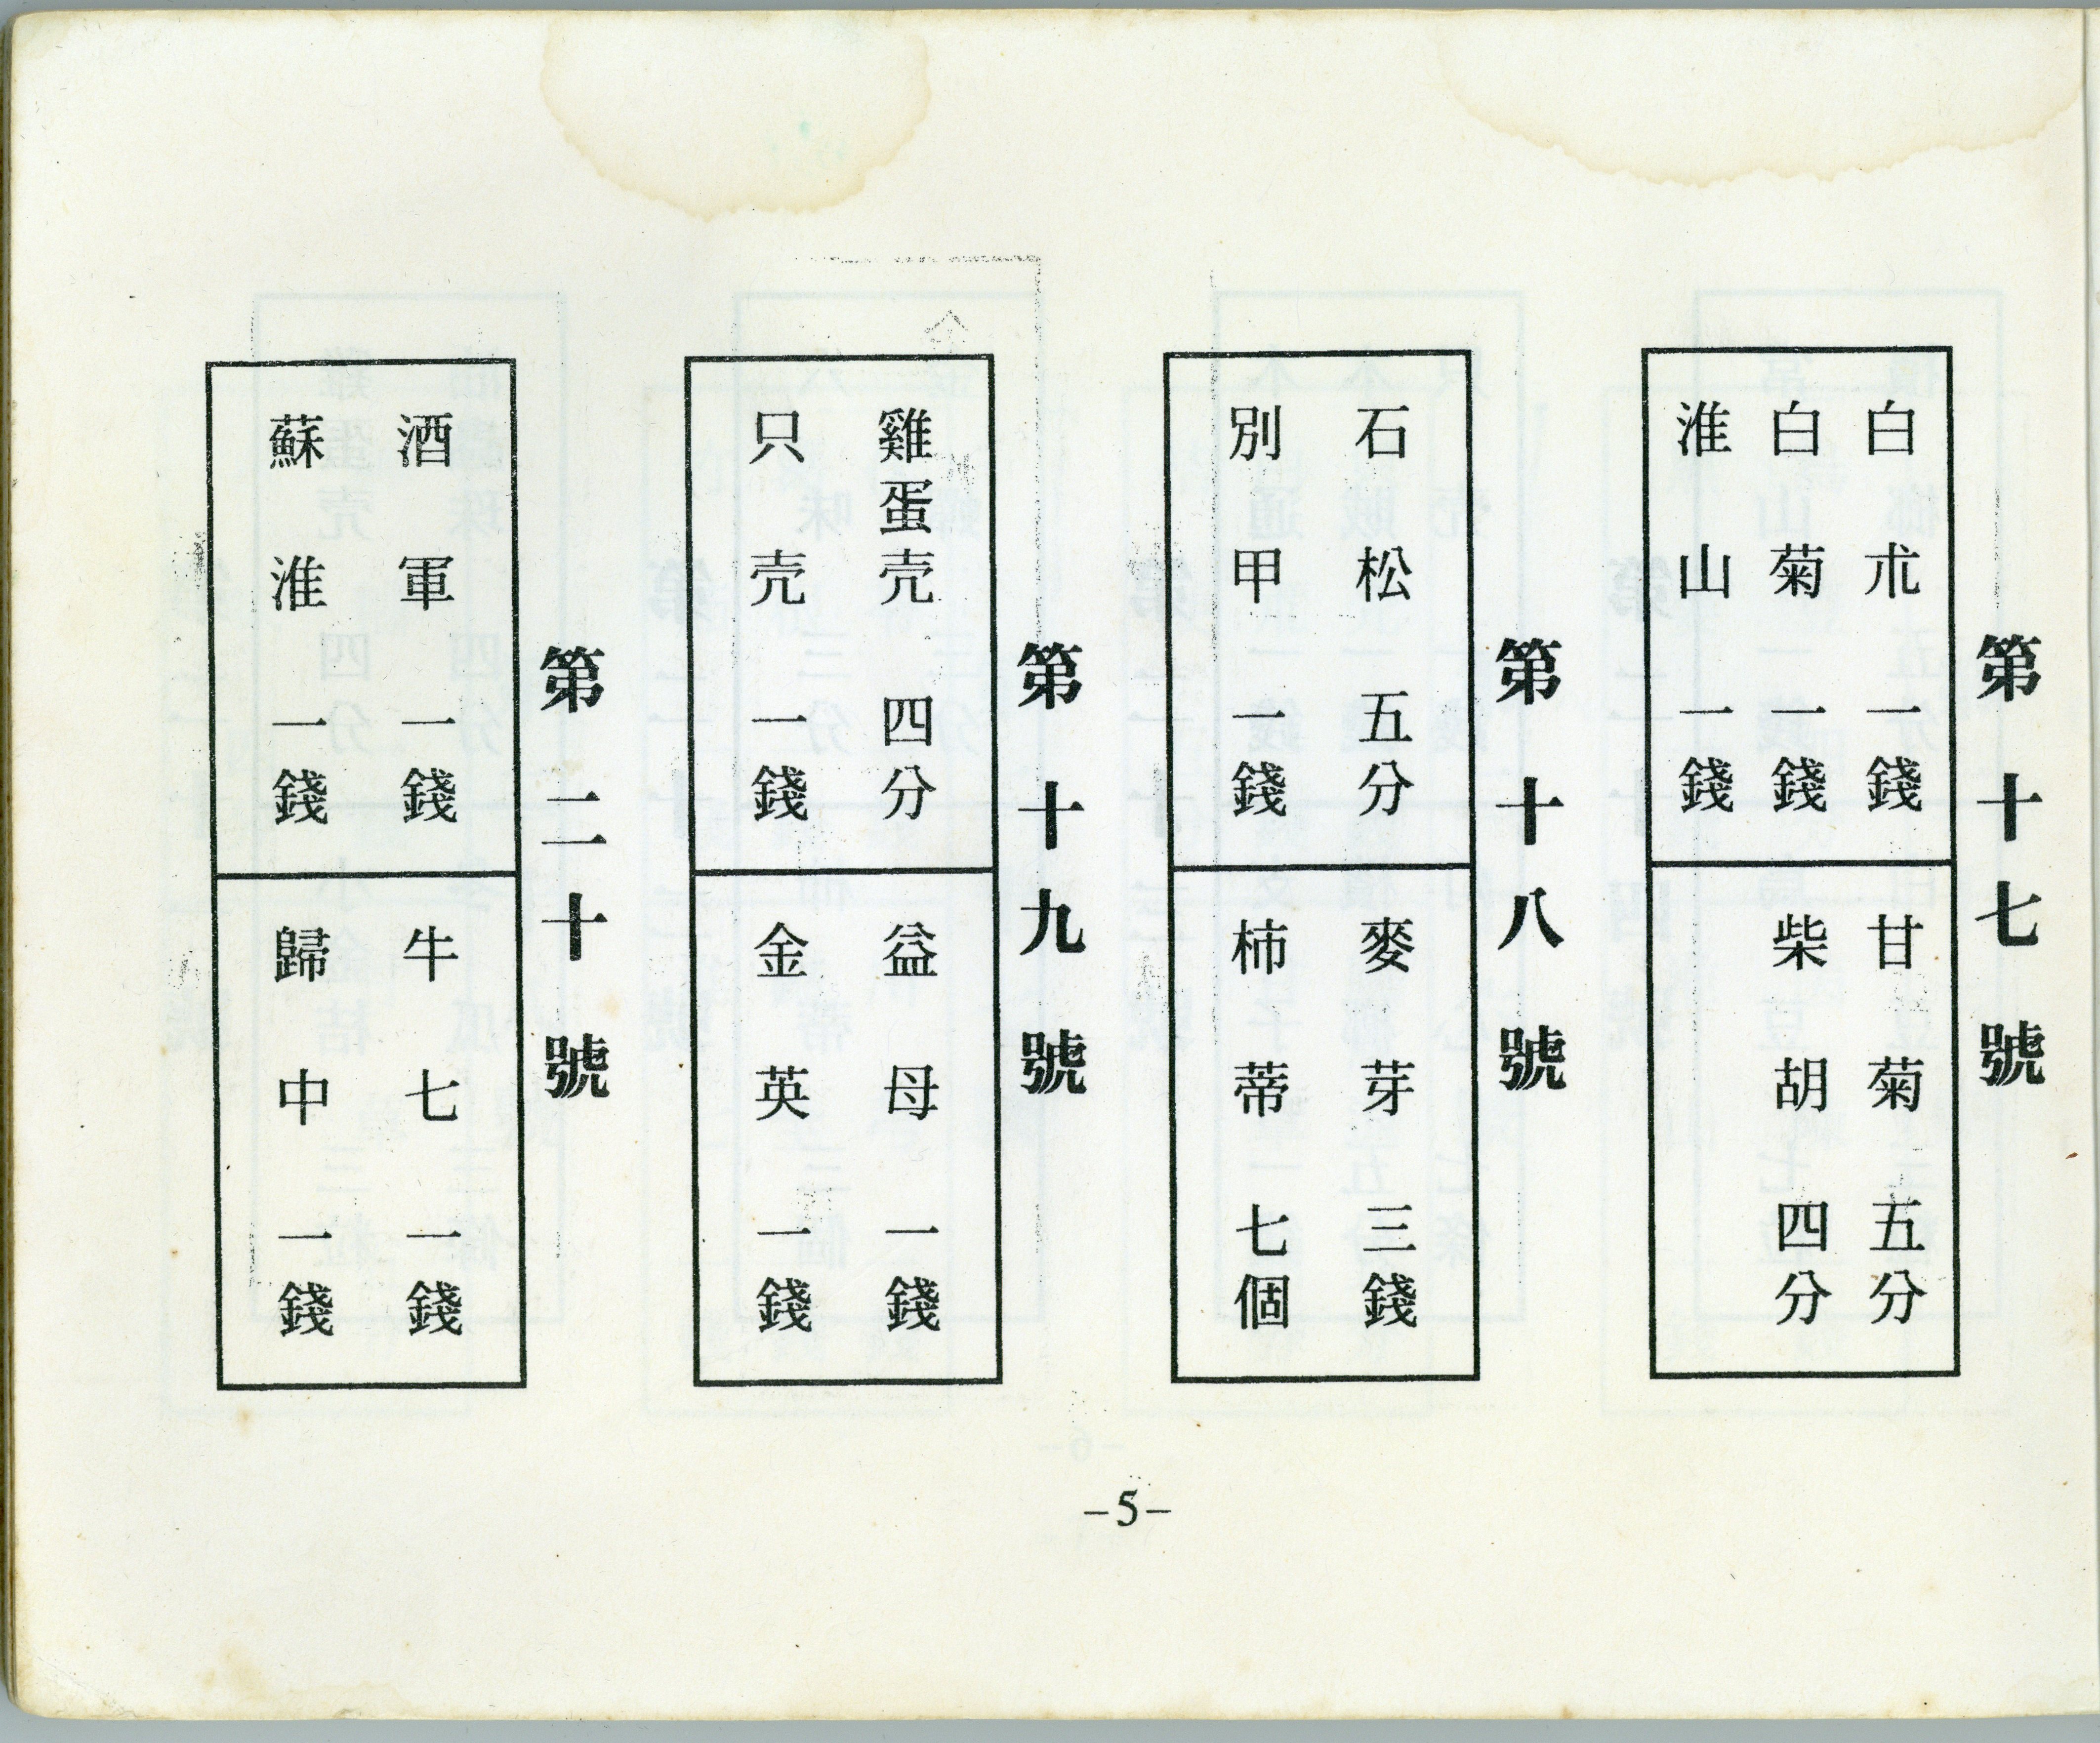 第十七號
白朮 一錢
白菊 一錢
淮山 一錢
甘菊 五分
柴胡 四分
第十八號
石松 五分
別甲 一錢
麥芽 三錢
柿蒂 七個
第十九號
雞蛋壳 四分
只壳 一錢
益母 一錢
金英 一錢
第二十號
酒軍 一錢
蘇淮 一錢
牛七 一錢
歸中 一錢
–5–